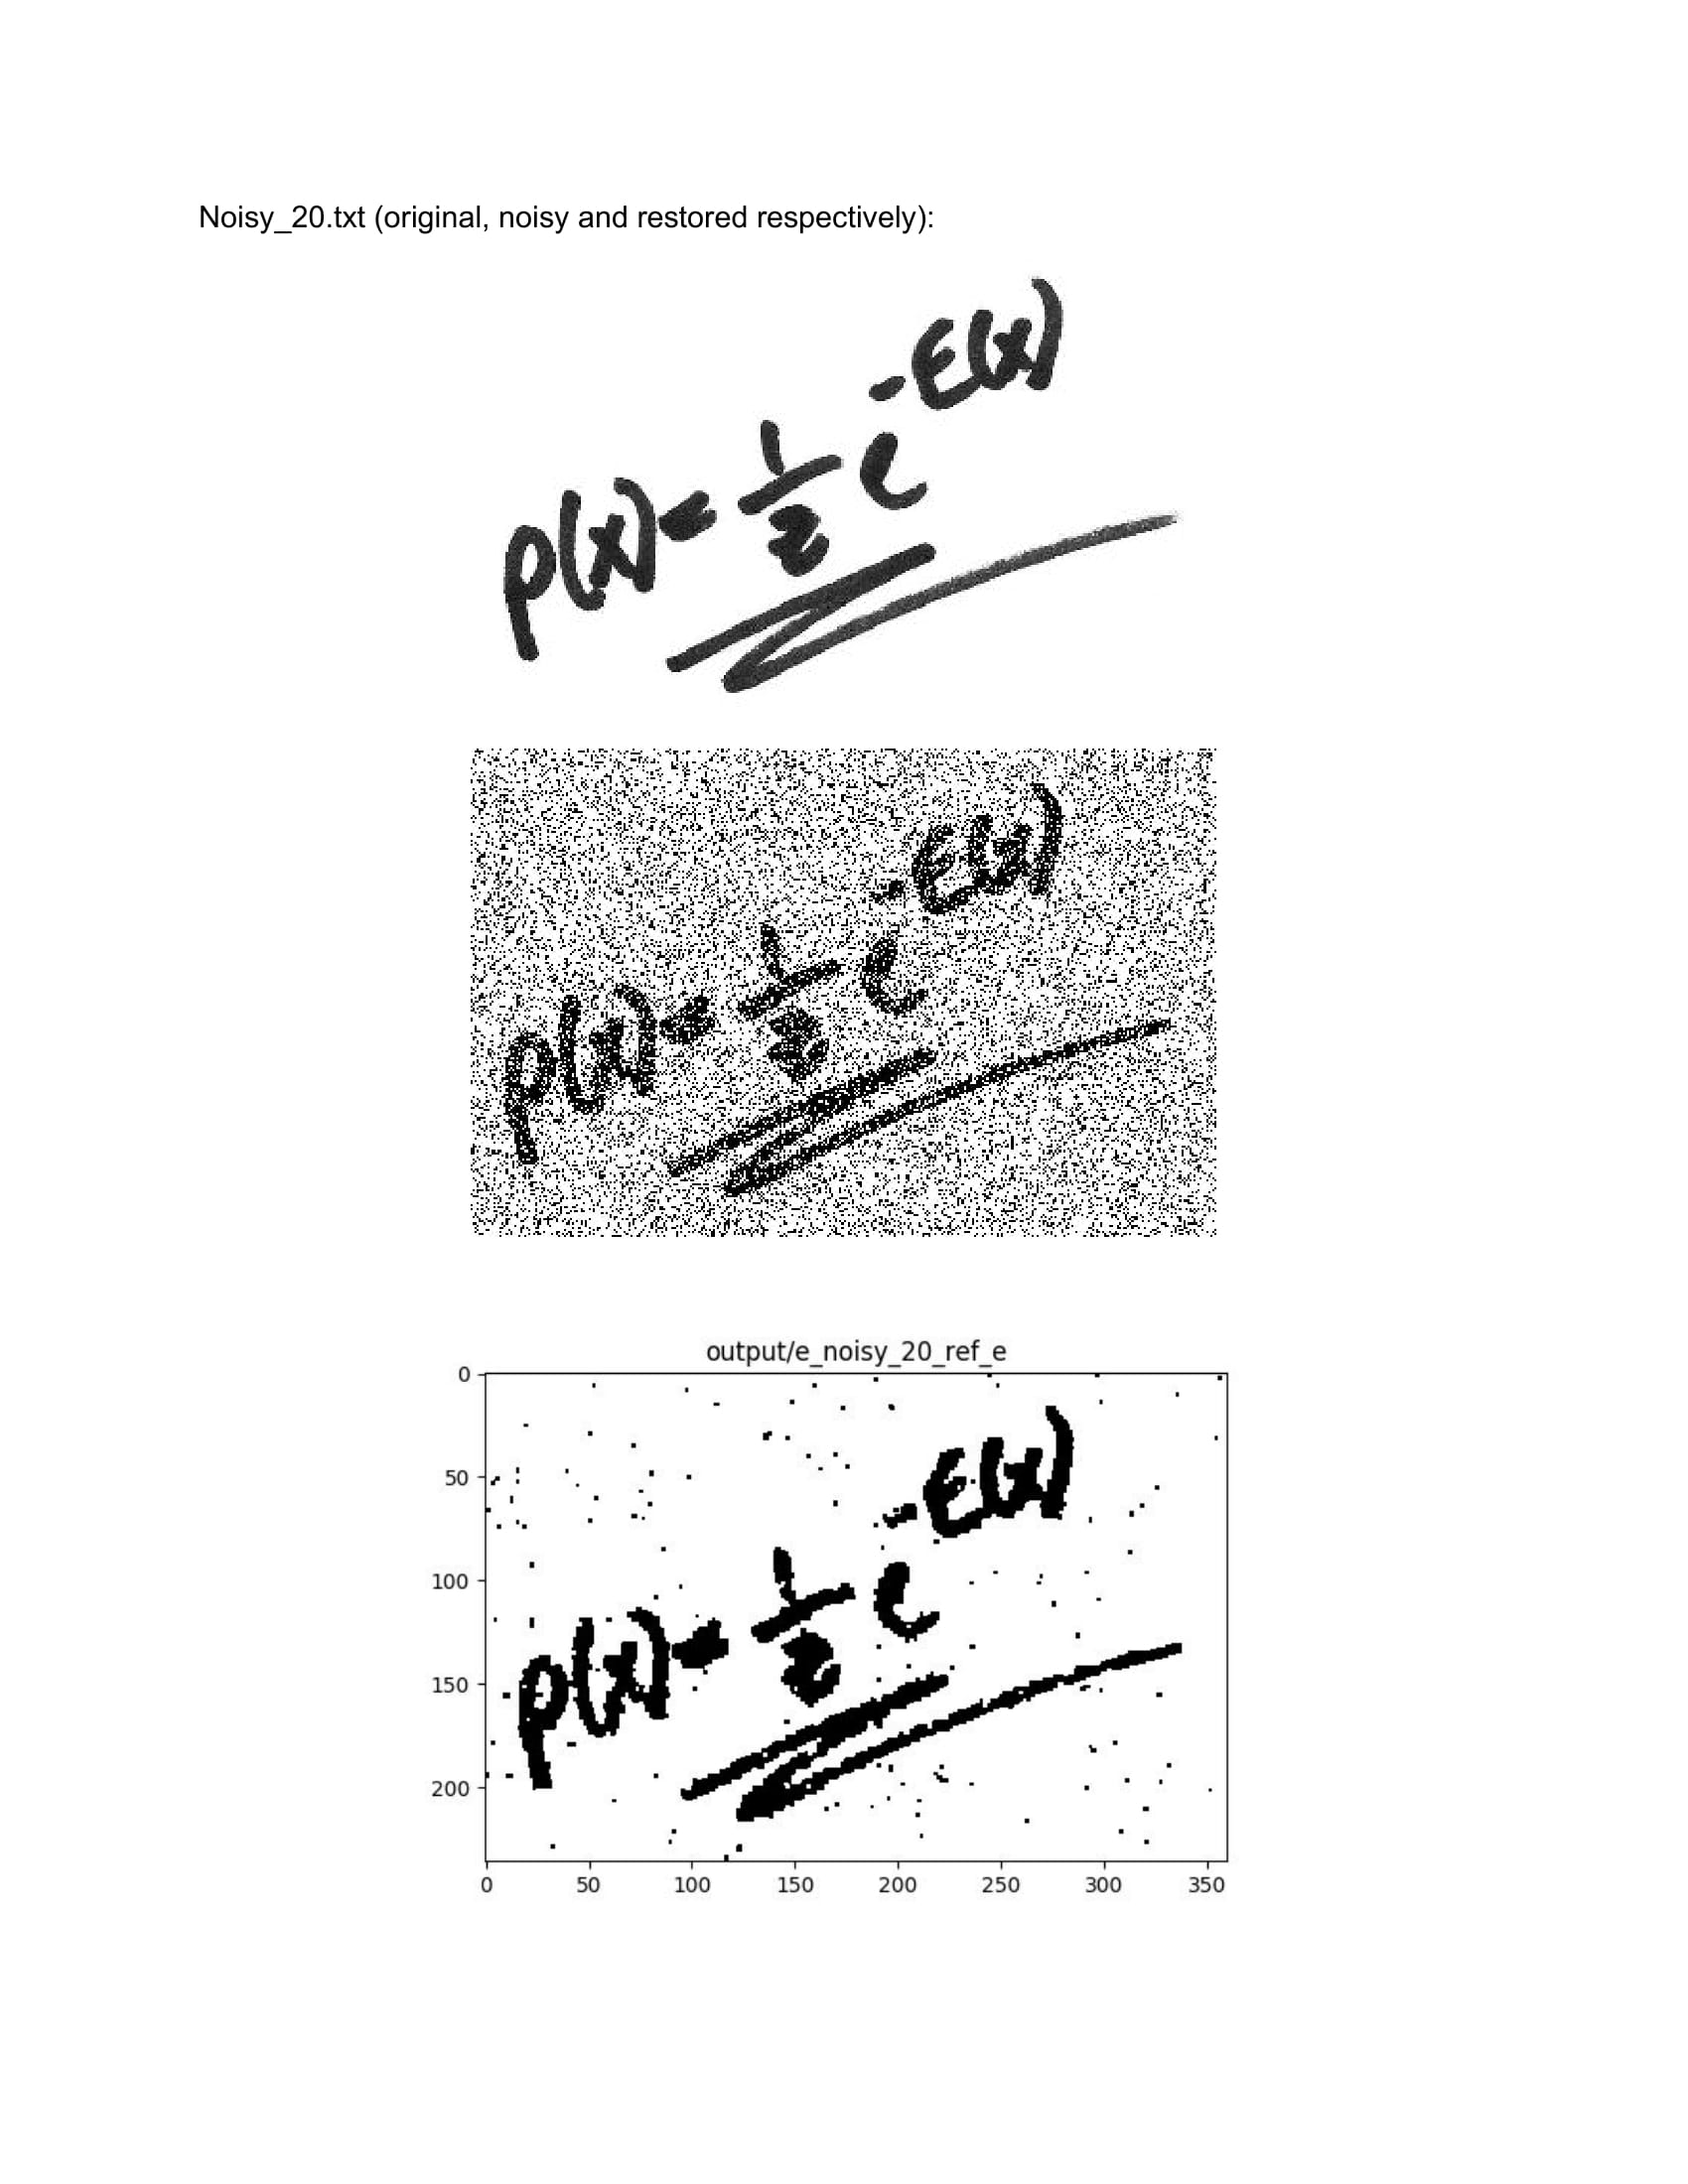 Noisy_20.txt (original, noisy and restored respectively):
p(x) = 1/z e^-E(x)
p(x) = 1/z e^-E(x)
output/e_noisy_20_ref_e
0
50
100
150
200
p(x) = 1/z e^-E(x)
0 50 100 150 200 250 300 350